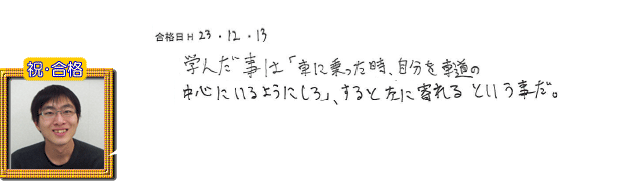 合格日 H 23・12・13
学んだ事は「車に乗った時、自分を車道の
祝・合格
中心にいるようにしろ」、すると左に寄れるという事だ。